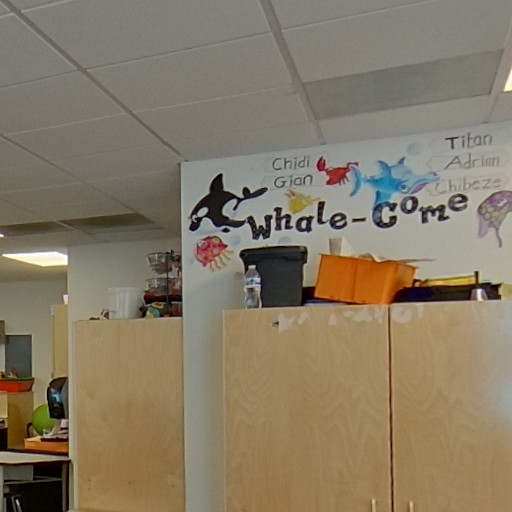 Chidi
Gian
Titan
Adrian
Chibeze
Whale-Come